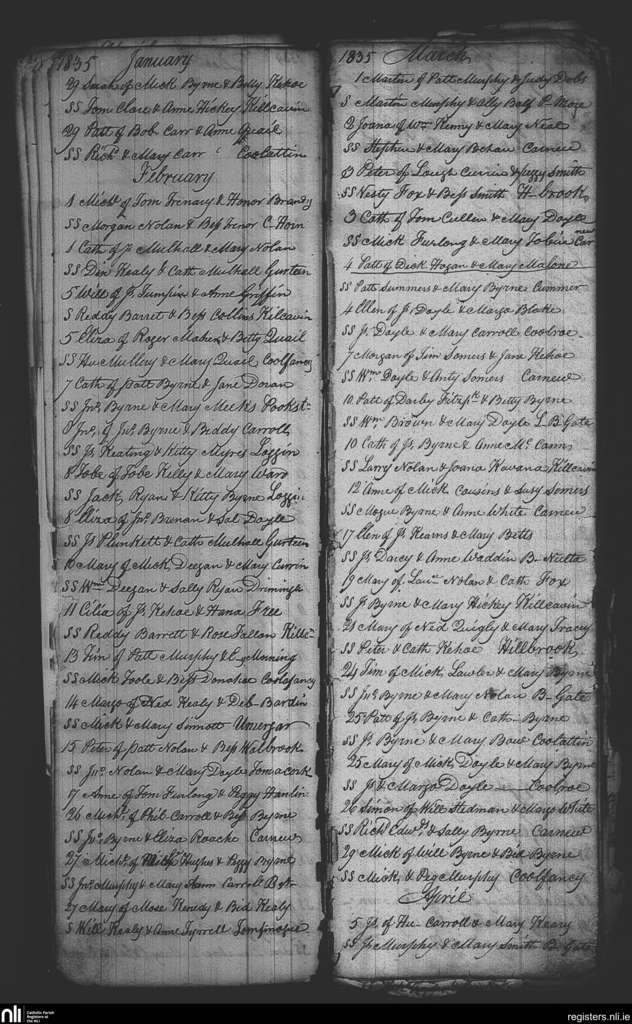 1835 January
29 Sarah of Mick Byrne & Betty Kehoe
SS Tom Clare & Anne Hickey Killcavin
29 Patt of Bob Carr & Anne Quail
SS Richd & Mary Carr Coolattin
February
1 Michl of Tom Trenary & Honor Brandy
SS Morgan Nolan & Bess Trenor C. Horn
1 Cath of Js Mulhall & Mary Nolan
SS Din Healy & Cath Mulhall Gurteen
5 Will of Js Tumpin & Anne Griffin
S Reddy Barret & Bess Collins Kilcavin
5 Eliza of Roger Maher & Betty Quail
SS Hu Mullery & Mary Quail Coolfancy
7 Cath of patt Byrne & Jane Doran
SS Jno. Byrne & Mary Meeks Pookst
8 Jno. of Jno Byrne & Biddy Carroll
SS Js Keating & Kitty Myres Lozzin
8 Tobe of Tobe Kelly & Mary Ward
SS Jack Ryan & Kitty Byrne Lozzin
8 Eliza of Jno. Brenan & Sal Doyle
SS Js Plunkett & Cath Mulhall Gurteen
10 Mary of Mick Deegan & Mary Currin
SS Wm Deegan & Sally Ryan
11 Cilia of Js Kehoe & Hana Free
SS Reddy Barrett & Rose Fallon Killc
13 Tim of Patt Murphy &
SS Mick Toole & Bess Donohoe Coolfancy
14 Margo of Ned Healy & Deb Bardin
SS Mick & Mary Sinnott Umergar
15 Peter of patt Nolan & Bess Welbrook
SS Jno. Nolan & Mary Doyle Tomacork
17 Anne of Tom Furlong & Peggy Hanlin
26 Michl. of Phil Carroll & Bess Byrne
SS Jno. Byrne & Eliza Roache Carnew
27 Michl. of Hughes & Peggy Byrne
SS Jno. Murphy & Mary Ann Carroll
27 Mary of Mose Kenedy & Bid Healy
S Will Healy & Anne Tyrrell
1835 March
1 Martin of Patt Murphy & Judy Dobs
S Martin Murphy & Ally Balf P. More
2 Joana of Wm Kenny & Mary Neal
SS Stephen & Mary Behan Carnew
3 Peter of Lough Currin & Smith
SS Nesty Fox & Bess Smith H-brook
3 Cath of Tom Cullen & Mary Doyle
SS Mick Furlong & Mary Tobin Carnew
4 Patt of Dick Hogan & Mary Malone
SS Patt Summers & Mary Byrne Cummer
4 Ellen of Js Doyle & Margo Blake
SS Js Doyle & Mary Carroll Coolroe
7 Morgan of Jim Somers & Jane Kehoe
SS Wm Doyle & Anty Somers Carnew
10 Patt of Darby Fitzpk & Betty Byrne
SS Wm Brown & Mary Doyle L.B. Gate
10 Cath of Js Byrne & Anne Mc Cann
SS Larry Nolan & Joana Kavana Killcavin
12 Anne of Mick Cousins & Susy Somers
SS Mogue Byrne & Anne White Carnew
17 Ellen of Js Kearns & Mary Betts
SS Js Darcy & Anne Waddin B-
19 Mary of Lau Nolan & Cath Fox
SS J. Byrne & Mary Hickey Killcavin
21 Mary of Ned Quigly & Mary Tracy
SS Peter & Cath Kehoe Hillbrook
24 Jim of Mick Lawler & Mary Byrne
SS Jno Byrne & Mary Nolan B-Gate
25 Patt of Js Byrne & Cath-Byrne
SS Js Byrne & Mary Bow Coolattin
25 Mary of Mick Doyle & Mary Byrne
SS Js & Margo Doyle Coolroe
26 Simon of Will Stedman & Margo White
SS Richd Edwds & Sally Byrne Carnew
29 Mick of Will Byrne & Bid Byrne
SS Mick & Peg Murphy Coolfancy
April
5 Js of Hu- Carroll & Mary Keary
SS Js Murphy & Mary Smith B-Gate
nli Catholic Parish
Registers at
the NLI
registers.nli.ie